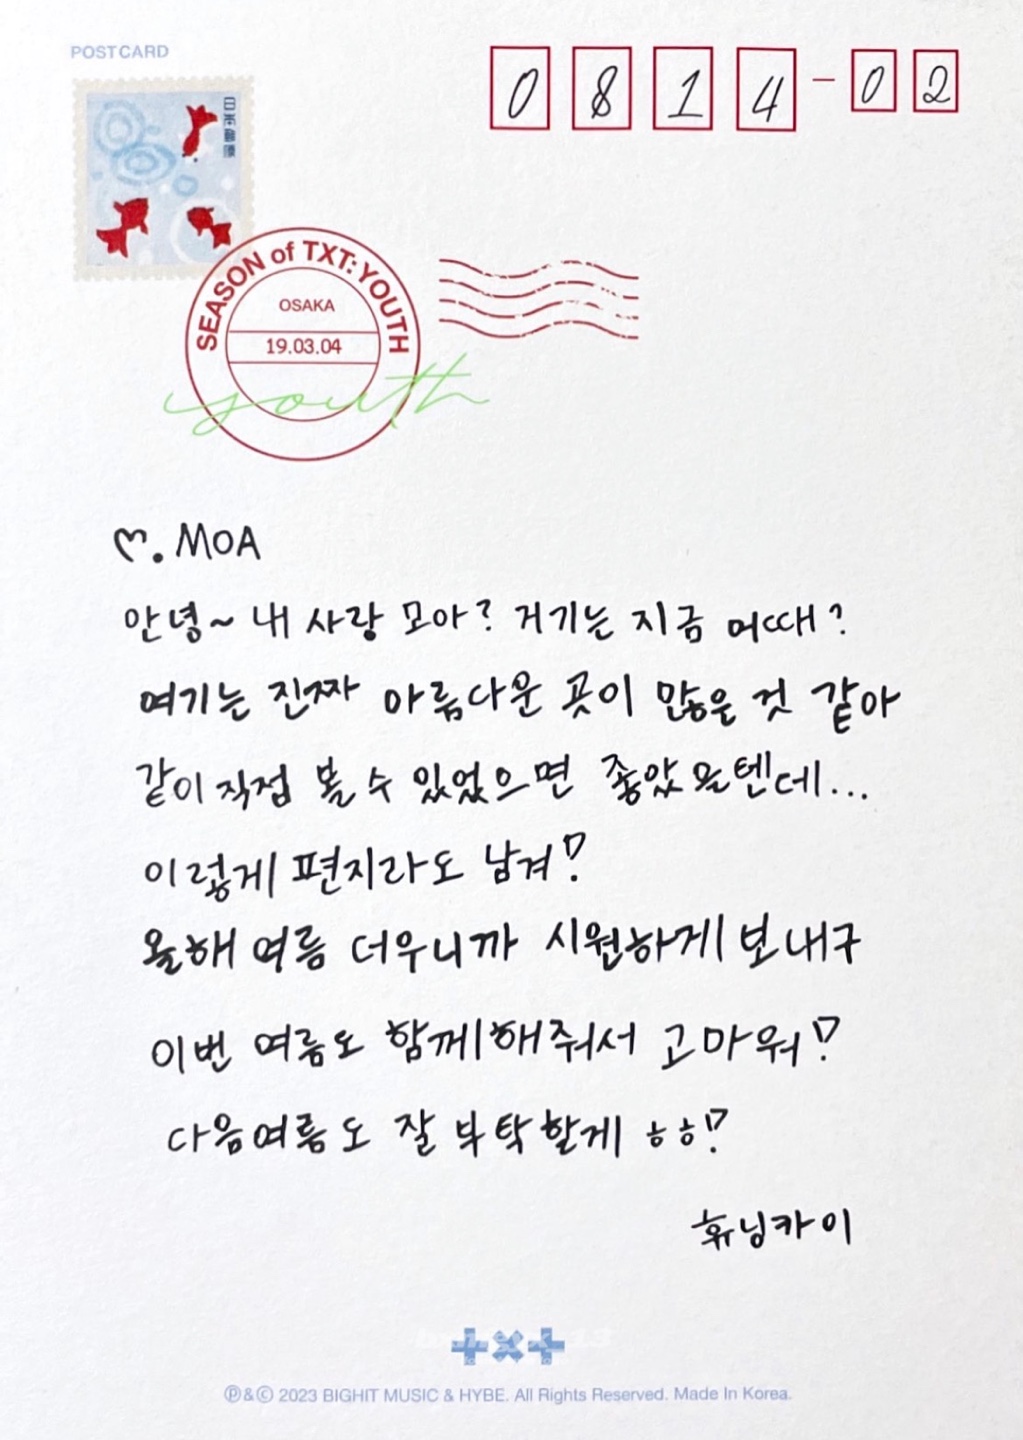 POSTCARD
0 8 1 4 - 0 2
日本郵便
SEASON of TXT: YOUTH
OSAKA
19.03.04
youth
♡. MOA
안녕~ 내 사랑 모아? 거기는 지금 어때?
여기는 진짜 아름다운 곳이 많은 것 같아
같이 직접 볼 수 있었으면 좋았을텐데...
이렇게 편지라도 남겨!
올해 여름 더우니까 시원하게 보내구
이번 여름도 함께해줘서 고마워!
다음여름도 잘 부탁할게 ㅎㅎ!
휴닝카이
+×+
Ⓟ&© 2023 BIGHIT MUSIC & HYBE. All Rights Reserved. Made In Korea.